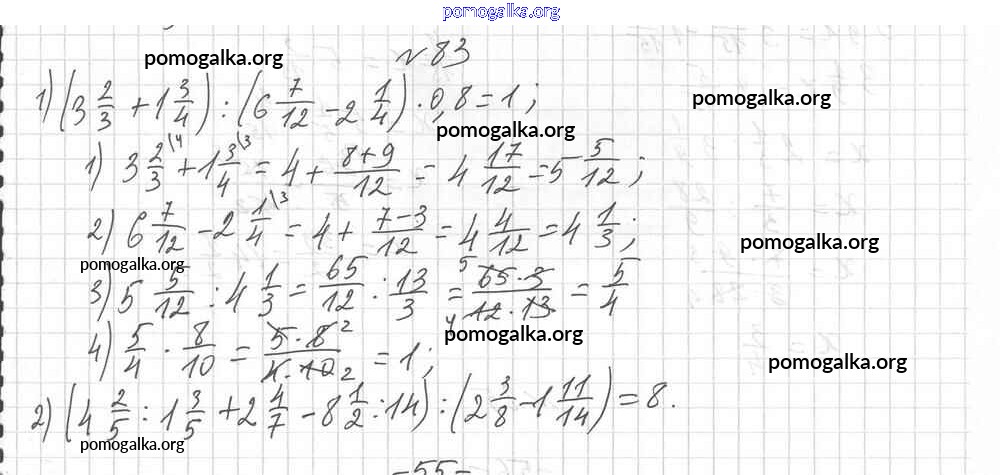 pomogalka.org
№83
pomogalka.org
1) (3 2/3 + 1 3/4) : (6 7/12 - 2 1/4) · 0,8 = 1;
pomogalka.org
pomogalka.org
1) 3 2/3 \4 + 1 3/4 \3 = 4 + (8+9)/12 = 4 17/12 = 5 5/12;
2) 6 7/12 - 2 1/4 \3 = 4 + (7-3)/12 = 4 4/12 = 4 1/3;
pomogalka.org
pomogalka.org
3) 5 5/12 : 4 1/3 = 65/12 : 13/3 = (5 65·3)/(4 12·13) = 5/4
pomogalka.org
4) 5/4 · 8/10 = (5·8 2)/(4·10 2) = 1;
pomogalka.org
2) (4 2/5 : 1 3/5 + 2 4/7 - 8 1/2 : 14) : (2 3/8 - 1 11/14) = 8.
pomogalka.org
-55-